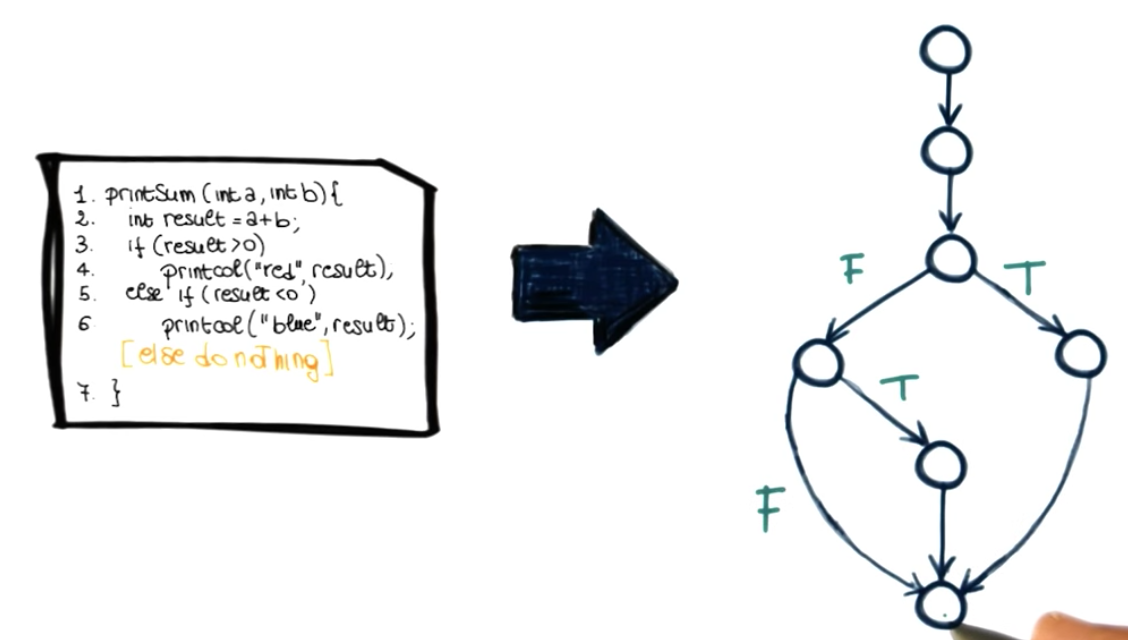 1. printSum (int a, int b) {
2. int result = a+b;
3. if (result >0)
4. printcol("red", result);
5. else if (result <0)
6 printcol("blue", result);
[else do nothing]
7. }
F
T
T
F